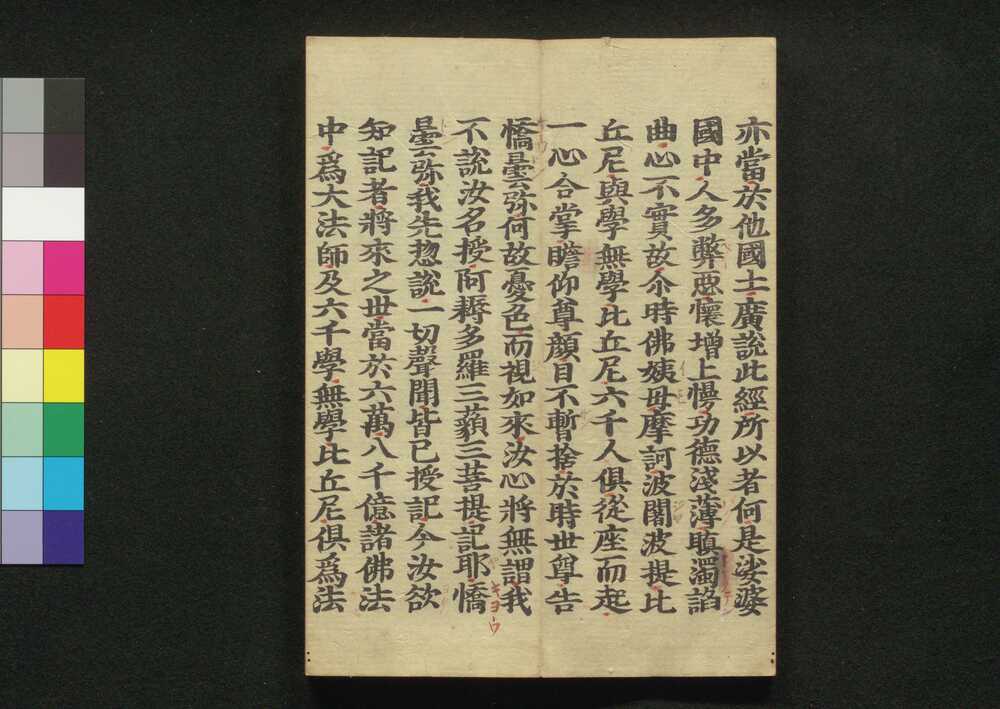 亦當於他國土廣說此經所以者何是娑婆
國中人多弊惡懷增上慢功德淺薄瞋濁諂
曲心不實故尒時佛姨母摩訶波闍波提比
丘尼與學無學比丘尼六千人俱從座而起
一心合掌瞻仰尊顏目不暫捨於時世尊告
憍曇弥何故憂色而視如來汝心將無謂我
不說汝名授阿耨多羅三藐三菩提記耶憍
曇弥我先惣說一切聲聞皆已授記今汝欲
知記者將來之世當於六萬八千億諸佛法
中為大法師及六千學無學比丘尼俱為法
キヨウ